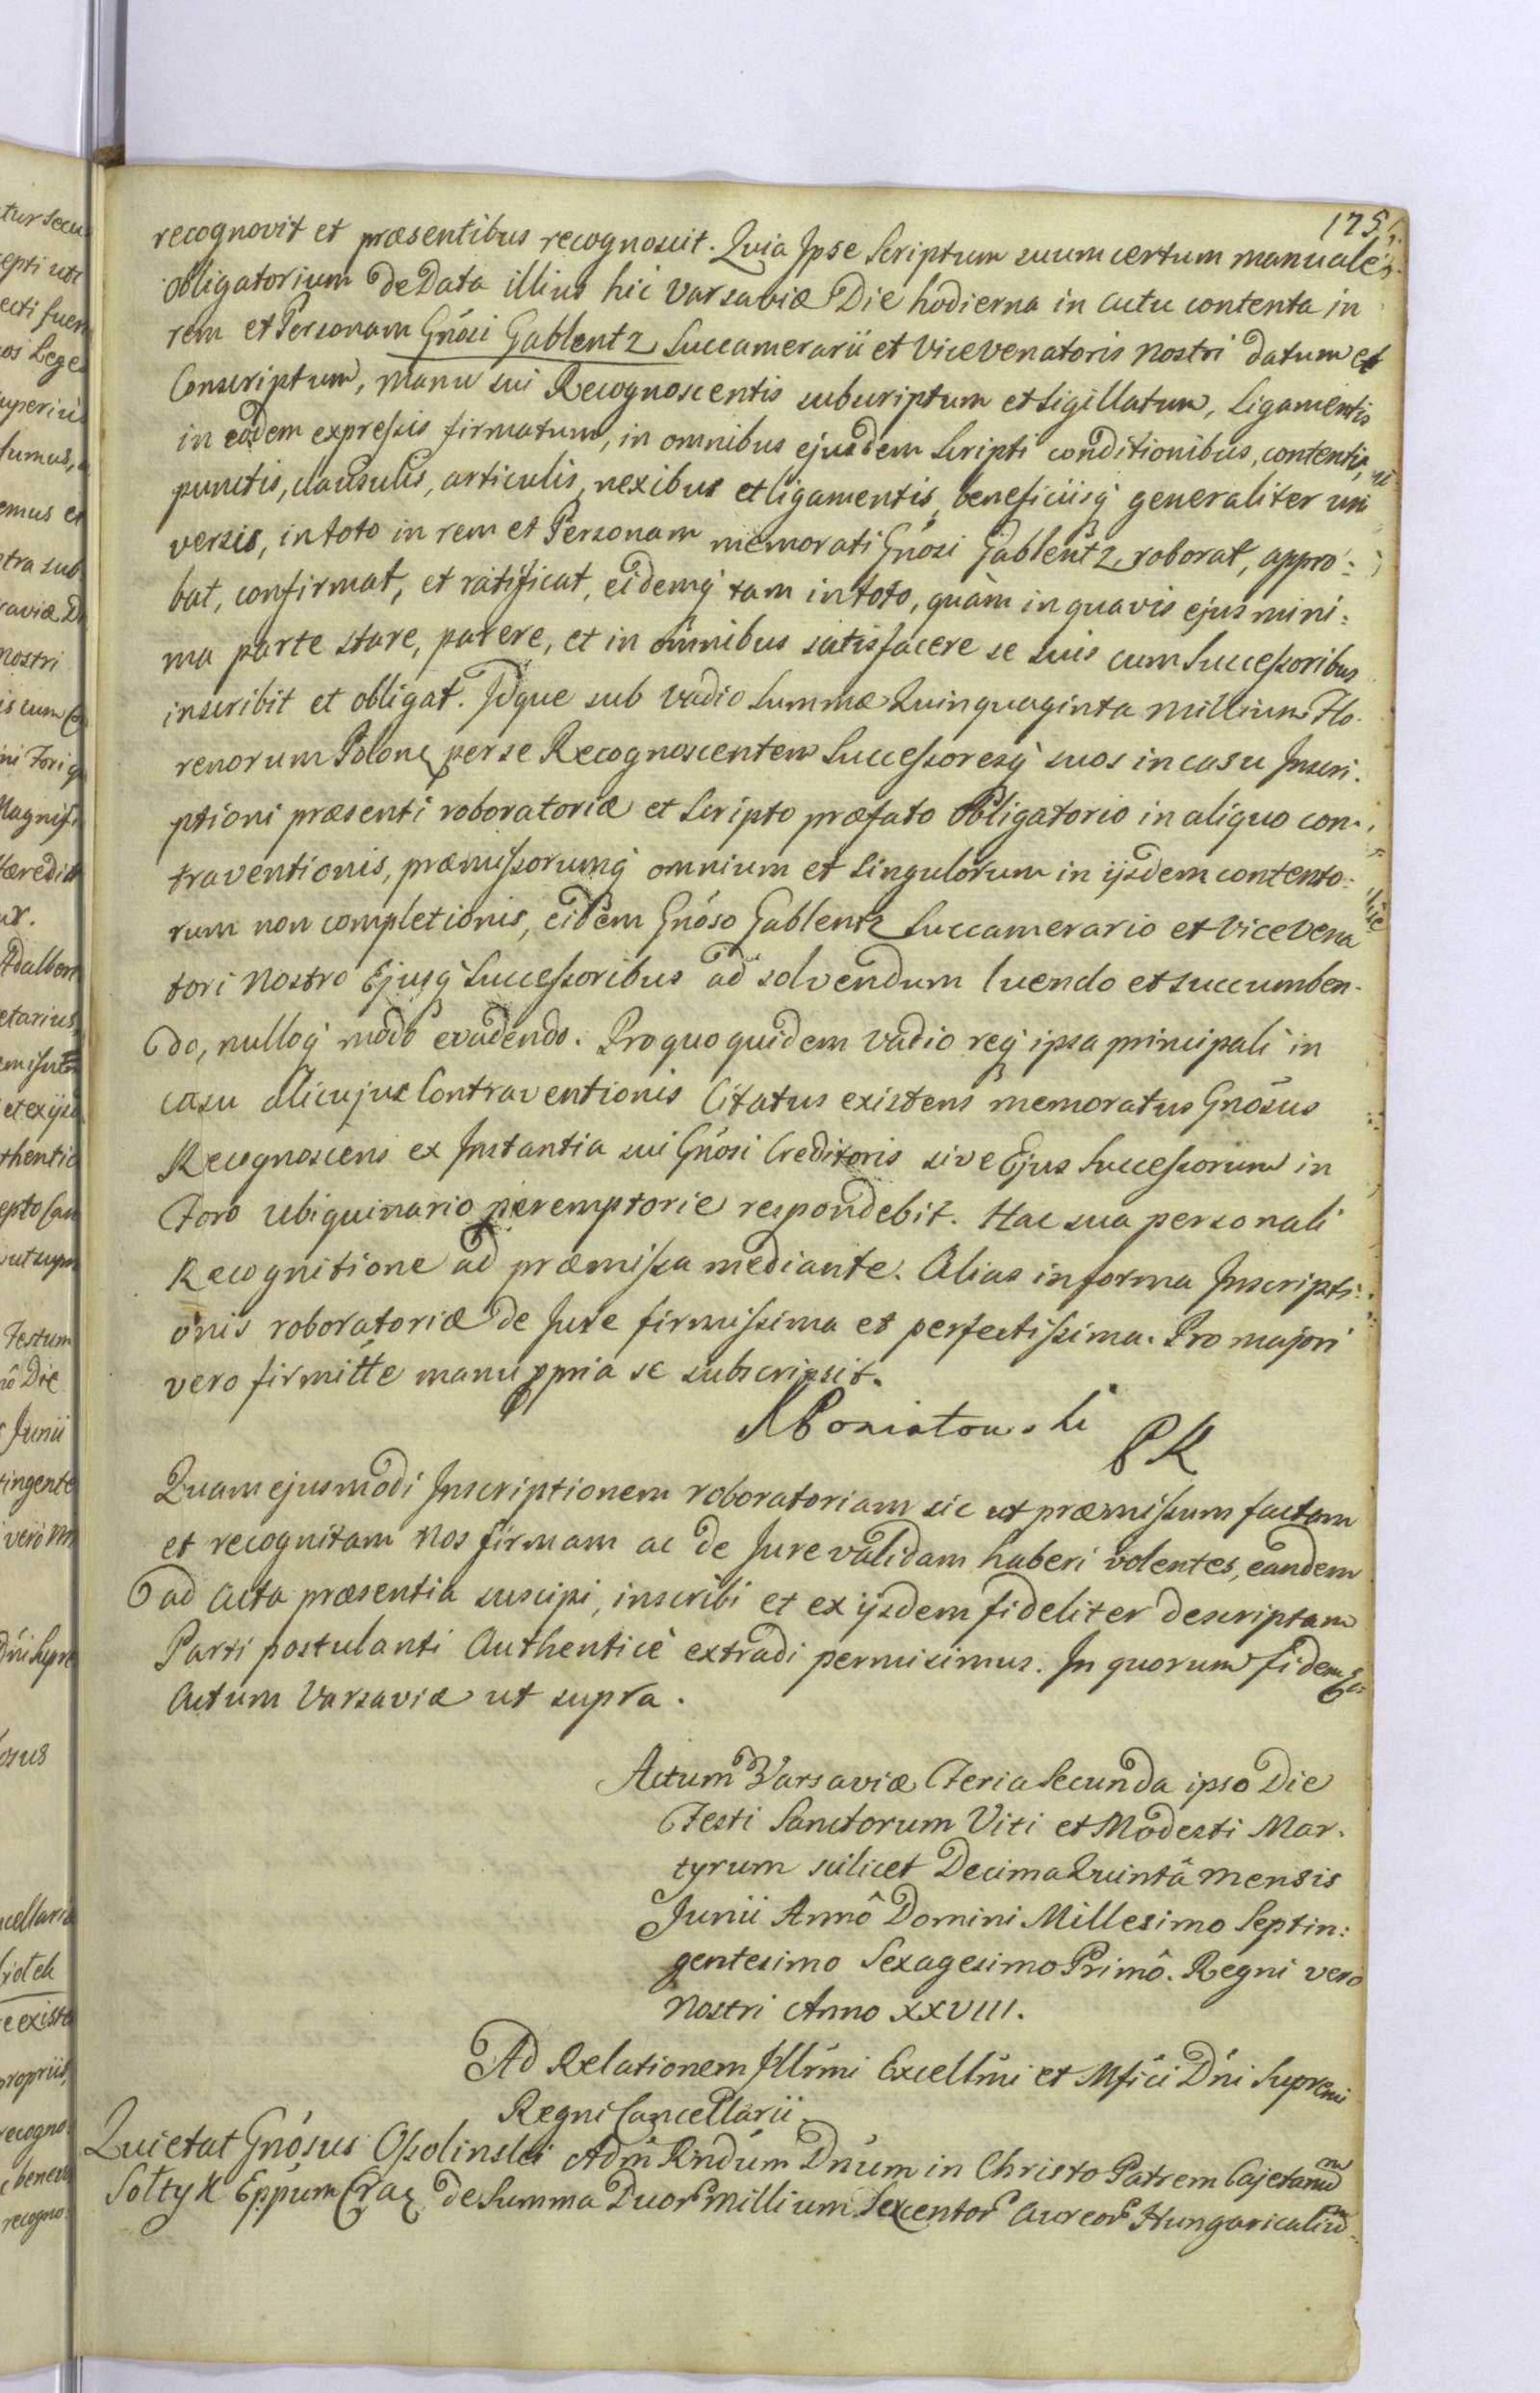 175
recognovit et præsentibus recognoscit. Quia Ipse Scriptum suum certum manuale
obligatorium de Data illius hic Varsaviæ Die hodierna in actu contenta in
rem et Personam Gnósi Gablentz Succamerarii et Vicevenatoris Nostri datum et
Conscriptum, manu sui Recognoscentis subscriptum et Sigillatum, Ligamentis
in eodem expressis firmatum, in omnibus ejusdem Scripti conditionibus, contentis,
punctis, clausulis, articulis, nexibus et ligamentis, beneficiisq generaliter uni
versis, in toto in rem et Personam memorati Gnósi Gablentz roborat, appro:
bat, confirmat, et ratificat, eidemq tam in toto, quàm in quavis ejus mini:
ma parte stare, parere, et in omnibus satisfacere se suis cum Successoribus
inscribit et obligat. Idque sub vadio Summæ Quinquaginta Millium Flo-
renorum Polon, per se Recognoscentem Successoresq suos in casu Inscri-
ptioni præsenti roboratoriæ et Scripto præfato Obligatorio in aliquo con-
traventionis, præmissorumq omnium et Singulorum in ijsdem contento:
rum non completionis, eidem Gnóso Gablentz Succamerario et Vicevena
tori Nostro Ejusq Successoribus ad solvendum luendo et succumben-
do, nulloq modo evadendo. Pro quo quidem vadio req ipsa principali in
casu alicujus Contraventionis Citatus existens memoratus Gnósus
Recognoscens ex Instantia sui Gnósi Creditoris sive Ejus Successorum in
Foro ubiquinario peremptorie respondebit. Hac sua personali
Recognitione ad præmissa mediante. Alias in forma Inscripti:
onis roboratoriæ de Jure firmissima et perfectissima. Pro majori
vero firmitte manu ppria se subscripsit.
Poniatowski PK
Quam ejusmodi Inscriptionem roboratoriam sic ut præmissum factam
et recognitam Nos firmam ac de Jure validam haberi volentes, eandem
ad Acta præsentia suscipi, inscribi et ex ijsdem fideliter descriptam
Parti postulanti Authenticè extradi permisimus. In quorum fidem
Actum Varsaviæ ut supra.
Actum Varsaviæ Feria Secunda ipso Die
Festi Sanctorum Viti et Modesti Mar-
tyrum scilicet Decima Quintâ Mensis
Junii Annô Domini Millesimo Septin:
gentesimo Sexagesimo Primô. Regni vero
Nostri Anno XXVIII.
Ad Relationem Illrmi Excellmi et Mfici Dni Supremi
Regni Cancellarii.
Quietat Gnósus Ossolinski Adm Rndum Dnum in Christo Patrem Cajetanum
Sołtyk Eppum Crac de Summa Duor Millium Sexcentor Aureor Hungaricalium